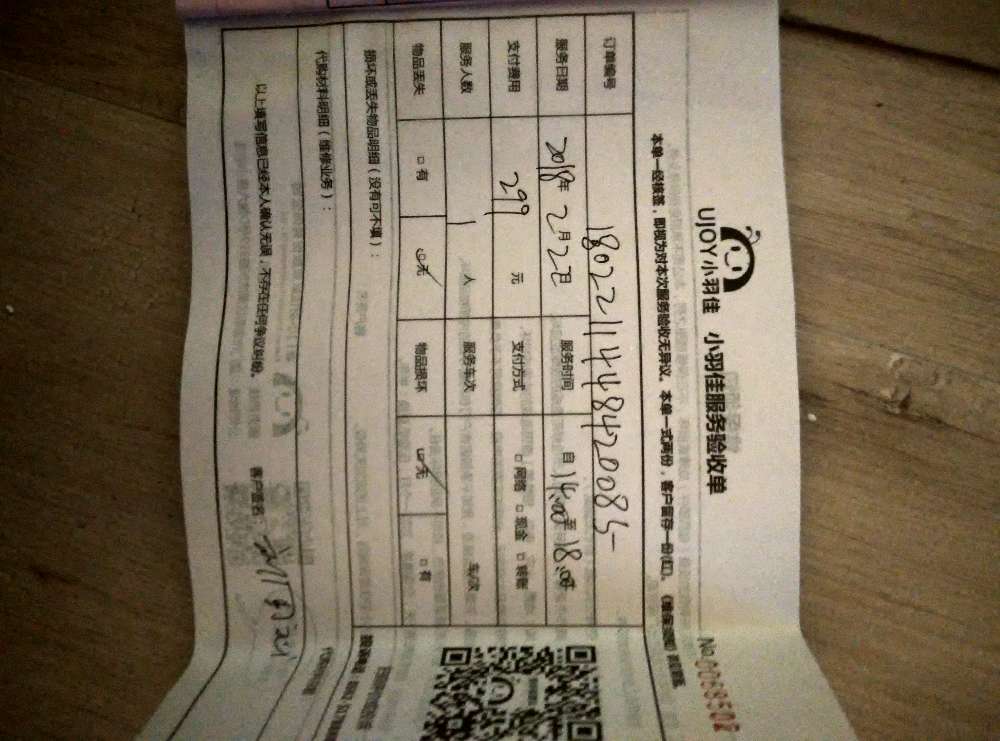 UJOY小羽佳 小羽佳服务验收单
No.0069502
本单一经接签，即视为对本次服务验收无异议。本单一式两份，客户留存一份(红)。
订单编号 1802211448420085
服务日期 2018年2月22日 服务时间 自14:00至18:00
支付费用 299 元 支付方式 □网络 □现金 □转账
服务人数 1 人 服务车次 车/次
物品丢失 □有 □无 物品损坏 □无 □有
损坏或丢失物品明细（没有可不填）：
代购材料明细（维修业务）：
以上填写信息已经本人确认无误，不存在任何争议纠纷。 客户签名：